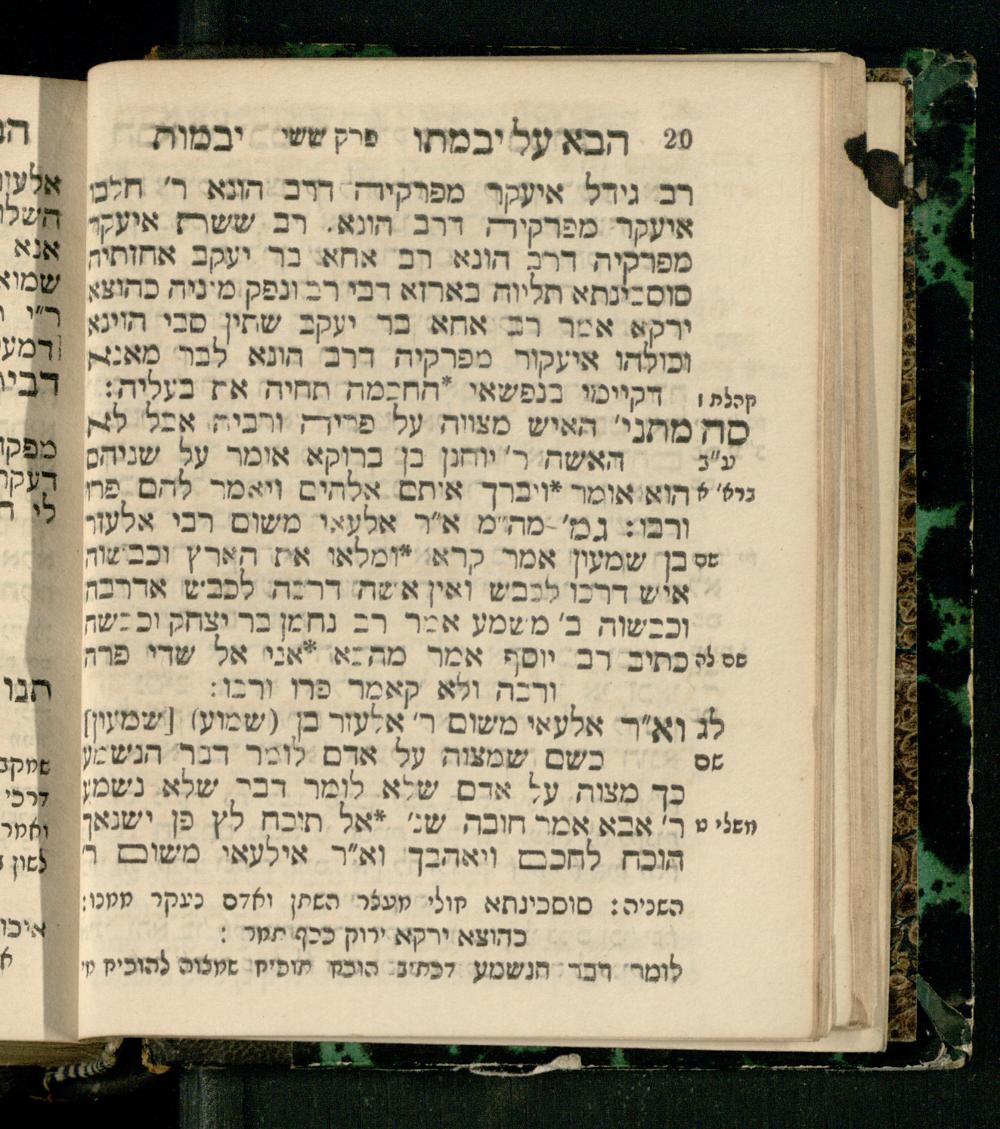 20 הבא על יבמתו פרק ששי יבמות
רב גידל איעקר מפרקיה דרב הונא ר׳ חלבו
איעקר מפרקיה דרב הונא. רב ששת איעקר
מפרקיה דרב הונא רב אחא בר יעקב אחזתיה
סוסכינתא תליוה בארזא דבי רב ונפק מיניה כהוצא
ירקא אמר רב אחא בר יעקב שתין סבי הוינא
וכולהו איעקור מפרקיה דרב הונא לבר מאנא
קהלת ז דקיימי בנפשאי *החכמה תחיה את בעליה:
סה מתני׳ האיש מצווה על פריה ורביה אבל לא
ע״ב האשה ר׳ יוחנן בן ברוקא אומר על שניהם
ברא׳ א הוא אומר *ויברך אותם אלהים ויאמר להם פרו
ורבו: גמ׳ מה״מ א״ר אלעאי משום רבי אלעזר
שם בן שמעון אמר קרא *ומלאו את הארץ וכבשוה
איש דרכו לכבש ואין אשה דרכה לכבש אדרבה
וכבשוה ב׳ משמע אמר רב נחמן בר יצחק וכבשה
שם לה כתיב רב יוסף אמר מהבא *אני אל שדי פרה
ורבה ולא קאמר פרו ורבו:
לג וא״ר אלעאי משום ר׳ אלעזר בן (שמוע) [שמעון]
שם כשם שמצוה על אדם לומר דבר הנשמע
כך מצוה על אדם שלא לומר דבר שלא נשמע
משלי ט ר׳ אבא אמר חובה שנ׳ *אל תוכח לץ פן ישנאך
הוכח לחכם ויאהבך וא״ר אילעאי משום ר׳
השניה: סוסכינתא חולי מעצר השתן ואדם נעקר ממנו:
כהוצא ירקא ירוק ככף תמר :
לומר דבר הנשמע דכתיב הוכח תוכיח שמצוה להוכיח מי